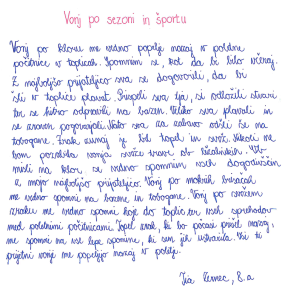 Vonj po sezoni in športu
Vonj po kloru me vedno popelje nazaj v poletne
počitnice v toplicah. Spomnim se, kot da bi bilo včeraj.
Z najboljšo prijateljico sva se dogovorili, da bi
šli v toplice plavat. Prispeli sva tja, si odložili stvari
ter se hitro odpravili na bazen. Veliko sva plavali in
se zraven pogovarjali. Nato sva za zabavo odšli še na
tobogane. Zrak zunaj je bil topel in svež. Nikoli ne
bom pozabila vonja sveže trave ob ležalnikih.
musli na klor, se vedno spomnim vseh dogodivščin
z mojo najboljšo prijateljico. Vonj po mokrih brisačah
me vedno spomni na bazene in tobogane. Vonj po svežem
zraku me vedno spomni hoje do toplic ter vseh sprehodov
med poletnimi počitnicami. Topel zrak, ki bo počasi prišel nazaj,
me spomni na vse lepe spomine, ki sem jih ustvarila. Vsi ti
prijetni vonji me popeljejo nazaj v poletje.
Tia 8.a